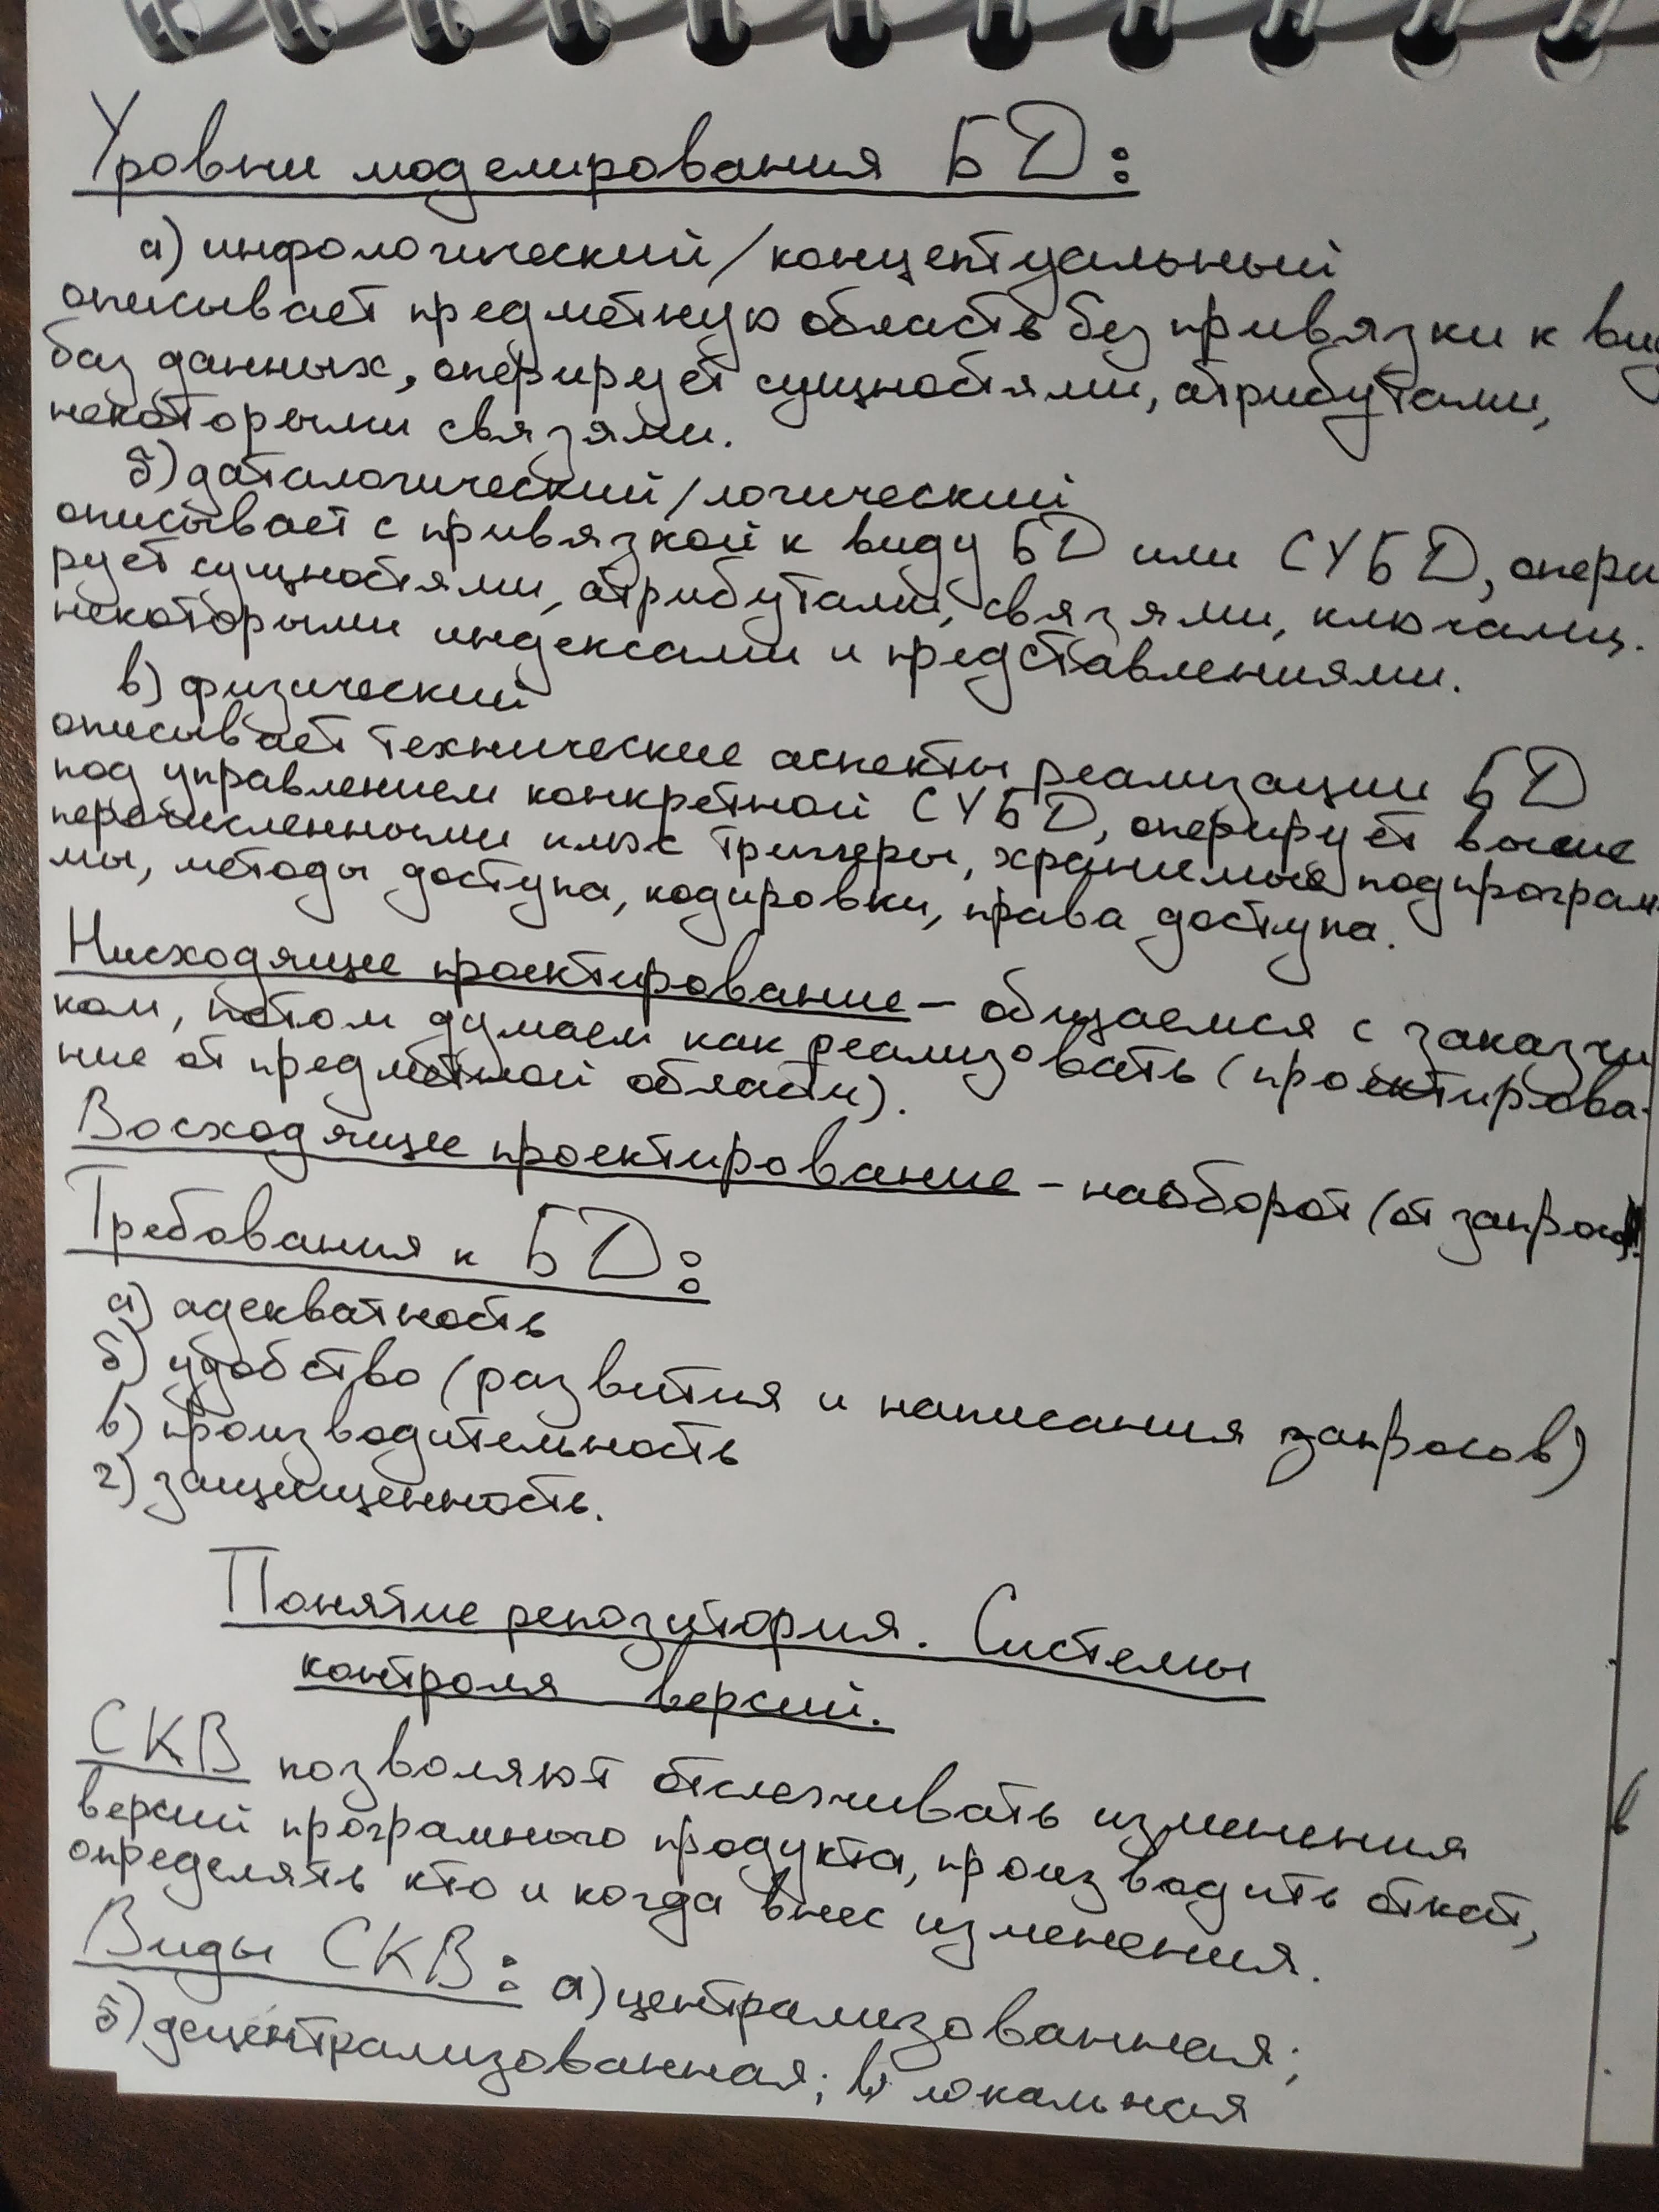 Уровни моделирования БД:
а) инфологический/концептуальный
описывает предметную область без привязки к
баз данных, оперирует сущностями, атрибутами,
некоторыми связями.
б) даталогический/логический
описывает с привязкой к виду БД или СУБД, опери
рует сущностями, атрибутами, связями, ключами,
некоторыми индексами и представлениями.
в) физический
описывает технические аспекты реализации БД
под управлением конкретной СУБД, оперирует выше
перечисленными плюс триггеры, хранимые подпрограм
мы, методы доступа, кодировки, права доступа.
Нисходящее проектирование – общаемся с заказчи
ком, потом думаем как реализовать (проектирова-
ние от предметной области).
Восходящее проектирование – наоборот (от
Требования к БД:
а) адекватность
б) удобство (развития и написания запросов)
в) производительность
г) защищенность.
Понятие репозитория. Системы
контроля версий.
СКВ позволяют отслеживать изменения
версий програмного продукта, производить откат,
определять кто и когда внес изменения.
Виды СКВ: а) централизованная;
б) децентрализованная; в) локальная